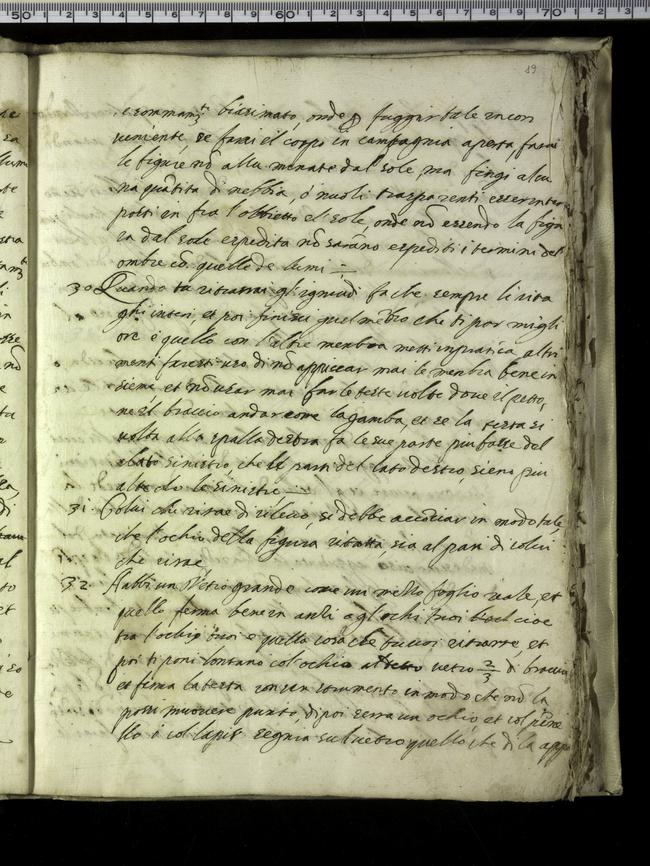 19
e sommam.te biasimato, onde p fuggir tale incon
veniente, se farai il corpo in campagnia aperta, farai
le figure nō alluminate dal sole, ma fingi alcu
na quātita di nebbia, o nuoli trasparenti esser inter
posti in fra l'obbietto e'l sole, onde nō essendo la figu
ra dal sole espedita nō sarāno espediti i termini del
ombre cō quelle de lumi
30 Quando tu ritrarrai gl'igniudi fa che sempre li ritra
ghi interi, et poi finisci quel mēbro che ti par migli
ore e quello con l'altre membra metti in pratica, altri
menti faresti uso di nō appiccar mai le membra bene in
sieme, et nō usar mai far le teste volte dove il petto,
ne il braccio andar come la gamba, et se la testa si
volta alla spalla destra fa le sue parte piu basse del
lato sinistro, che le parti del lato destro, sieno piu
alte che le sinistre
31. Colui che ritrae di rilievo, si debbe acconciar in modo tale,
che l'ochio della figura ritratta, sia al pari di colui
che ritrae
32. Habbi un Vetro grande come un mezzo foglio reale, et
quello ferma bene in anzi agl'ochi tuoi cioe
tra l'ochio tuoi e quella cosa che tu vuoi ritrarre, et
poi ti poni lontano col ochio al detto vetro 2/3 di braccio
et ferma la testa con un stormento in modo che nō la
possi muovere punto, di poi serra un ochio et col pene
llo o col lapis segnia sul vetro quello che di la app
50
60
70
1
2
3